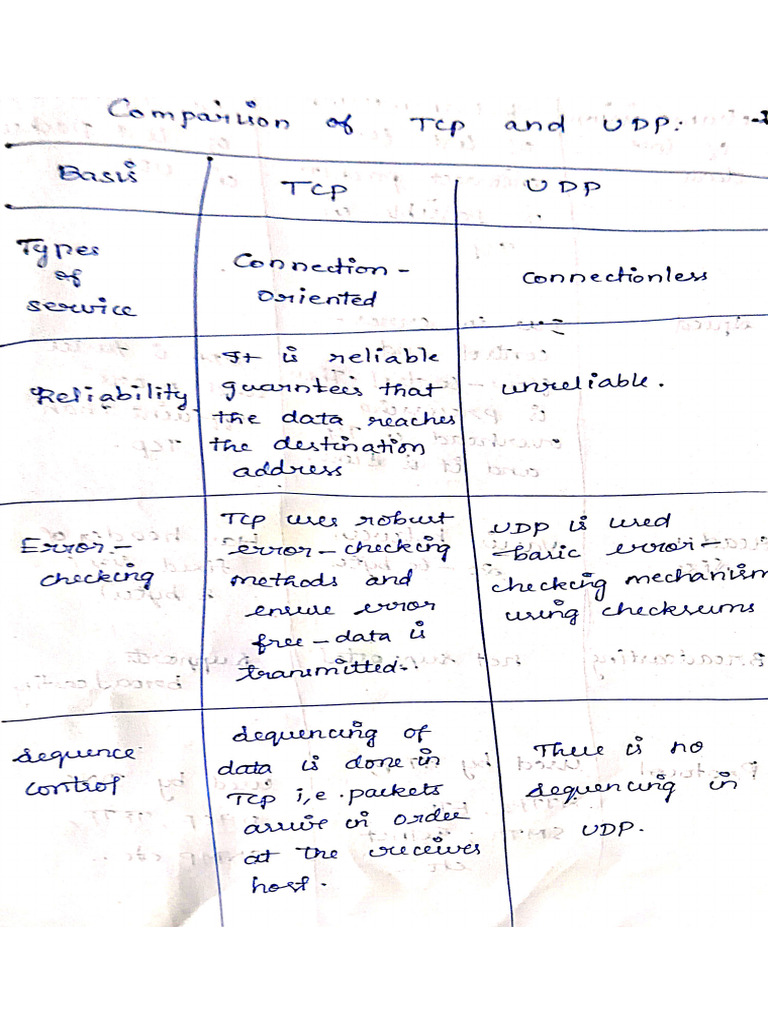 Comparision of TCP and UDP:
Basis
TCP
UDP
Types
of
service
Connection -
Oriented
connectionless
Reliability
It is reliable
guarntees that
the data reaches
the destination
address
unreliable.
Error -
checking
TCP uses robust
error - checking
methods and
ensure error
free - data is
transmitted.
UDP is used
basic error -
checking mechanism
using checksums
sequence
control
sequencing of
data is done in
TCP i,e. packets
arrive in order
at the receives
host.
There is no
sequencing in
UDP.